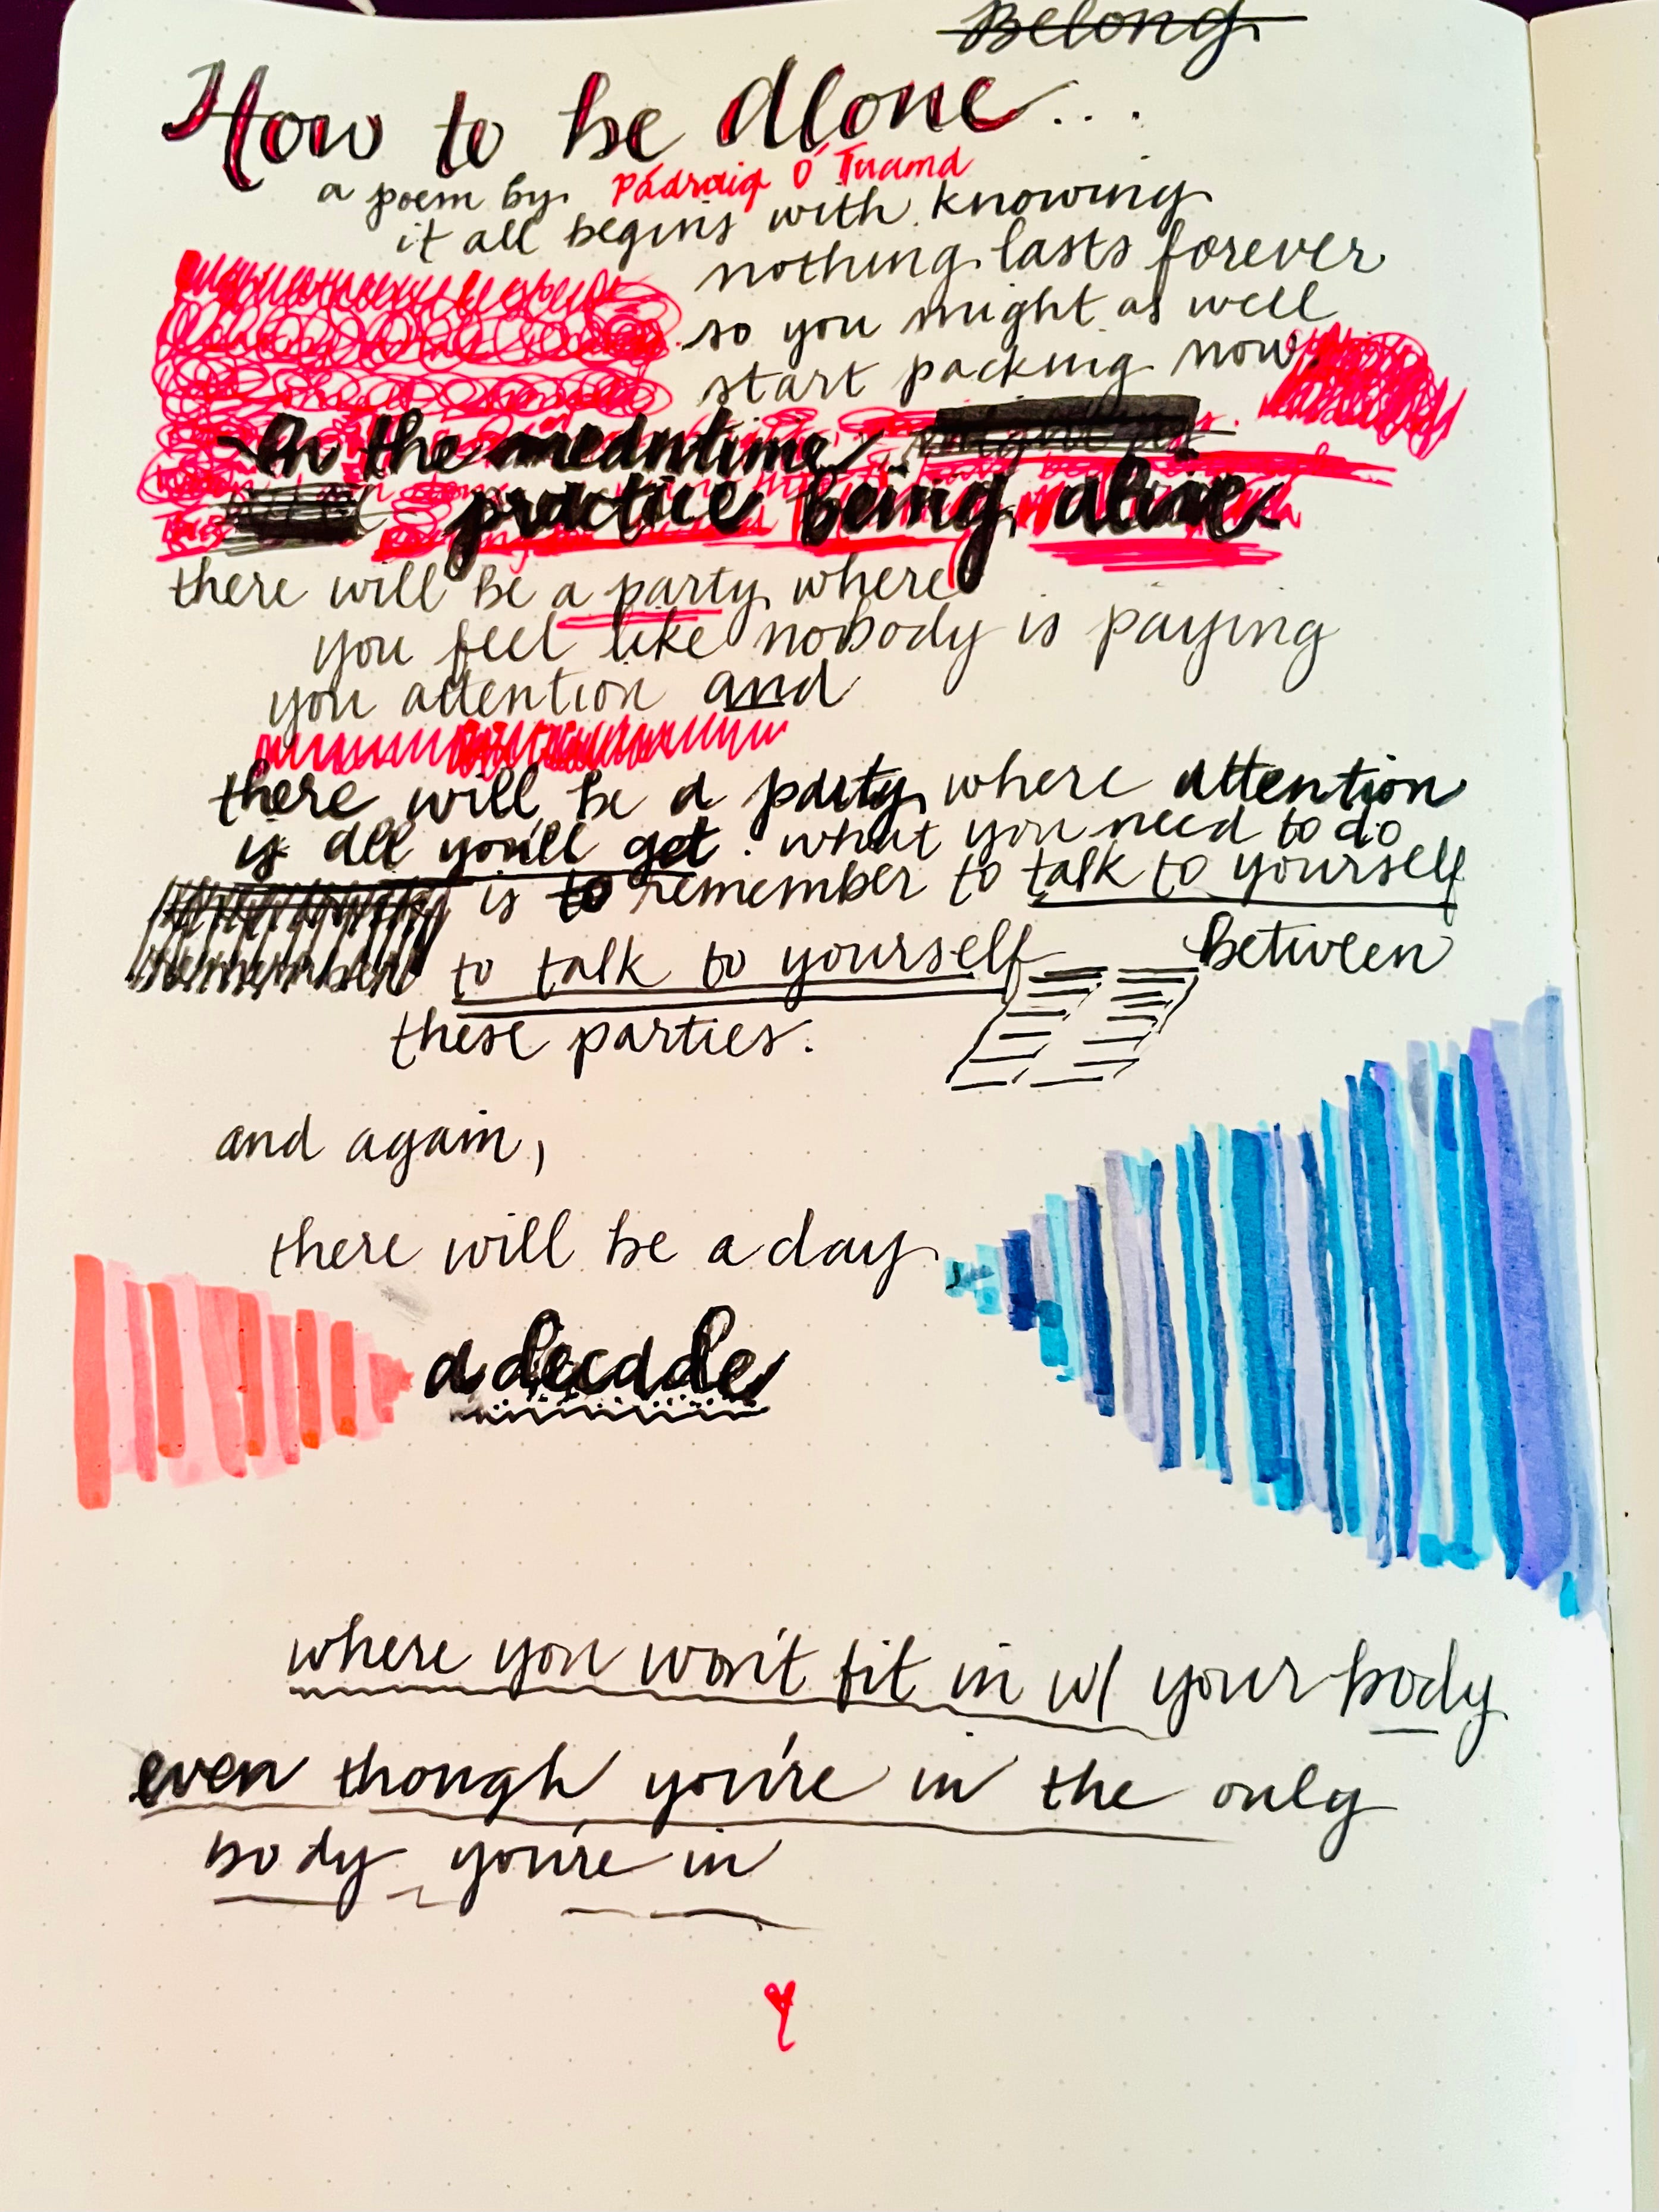 Belong
How to be Alone...
a poem by: Pádraig Ó Tuama
it all begins with knowing
nothing lasts forever
so you might as well
start packing now.
In the meantime,
practice being alive.
there will be a party where
you feel like nobody is paying
you attention and
there will be a party where attention
is all you'll get. what you need to do
is to remember to talk to yourself
remember to talk to yourself between
these parties.
and again,
there will be a day
a decade
where you won't fit in w/ your body
even though you're in the only
body you're in